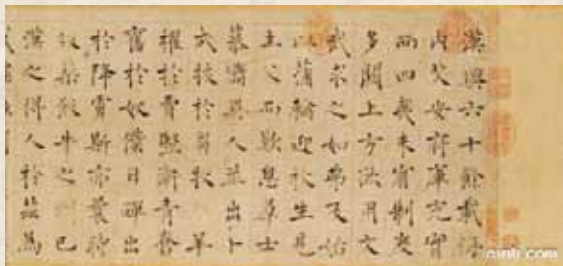 漢興六十餘載海
內艾安府庫充實
而四夷未賓制度
多闕上方欲用文
武求之如弗及始
以蒲輪迎枚生見
主父而歎息羣士
慕嚮異人並出卜
式拔於芻牧羊
擢於賈豎衛青奮
奮於奴僕日磾出
於降虜斯亦曩時
板築飯牛之明已
漢之得人於茲為